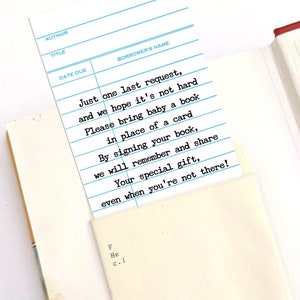 AUTHOR
TITLE
DATE DUE BORROWER'S NAME
Just one last request,
and we hope it's not hard
Please bring baby a book
in place of a card
By signing your book,
we will remember and share
Your special gift,
even when you're not there!
F
He
c.1